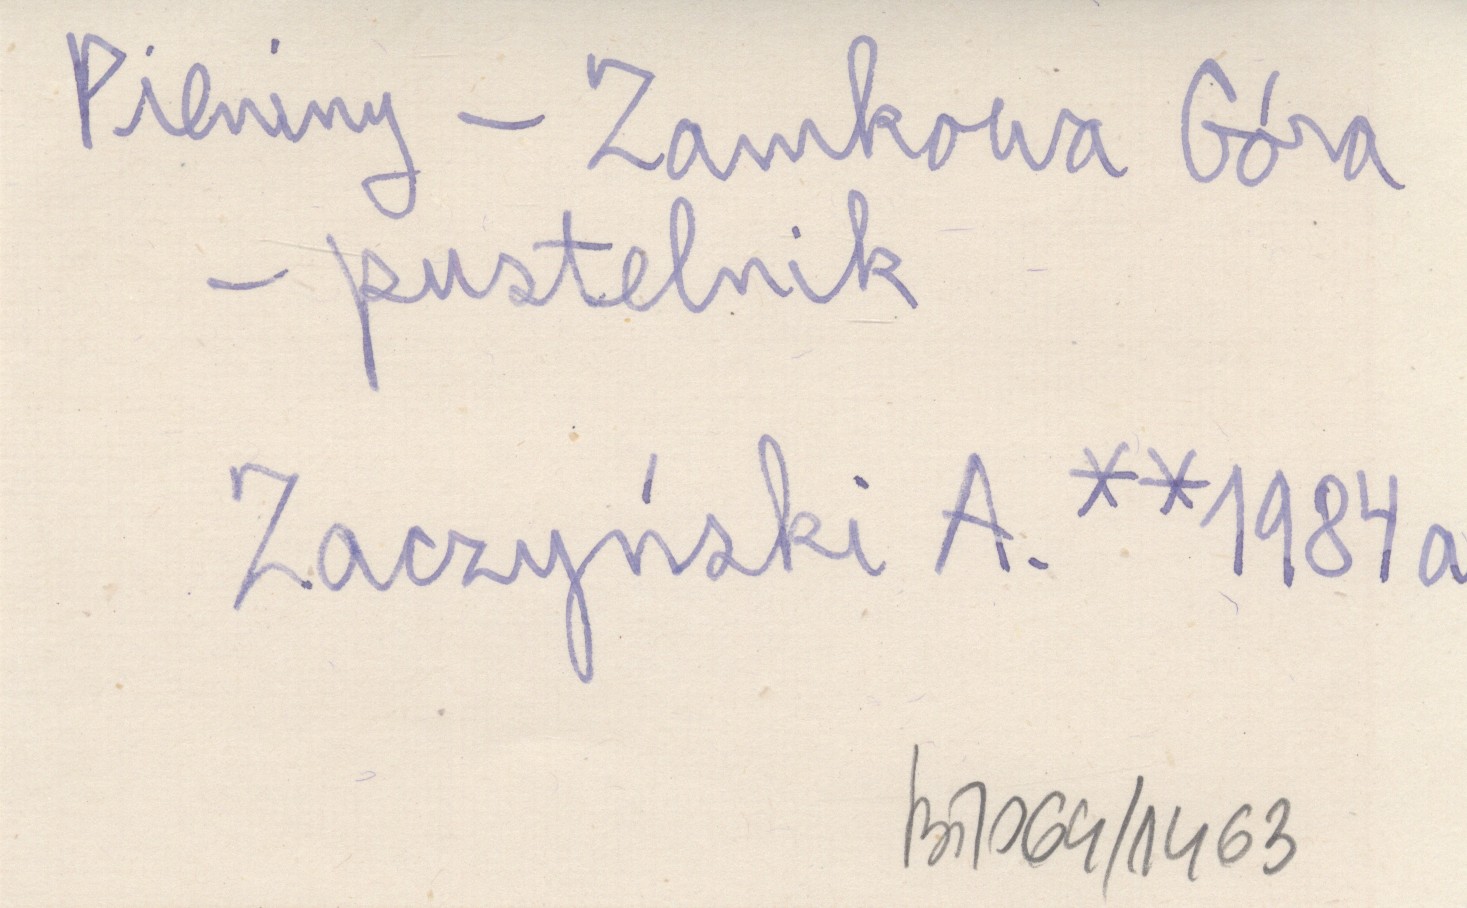 Pieniny – Zamkowa Góra
– pustelnik
Zaczyński A. **1984a
064/1463